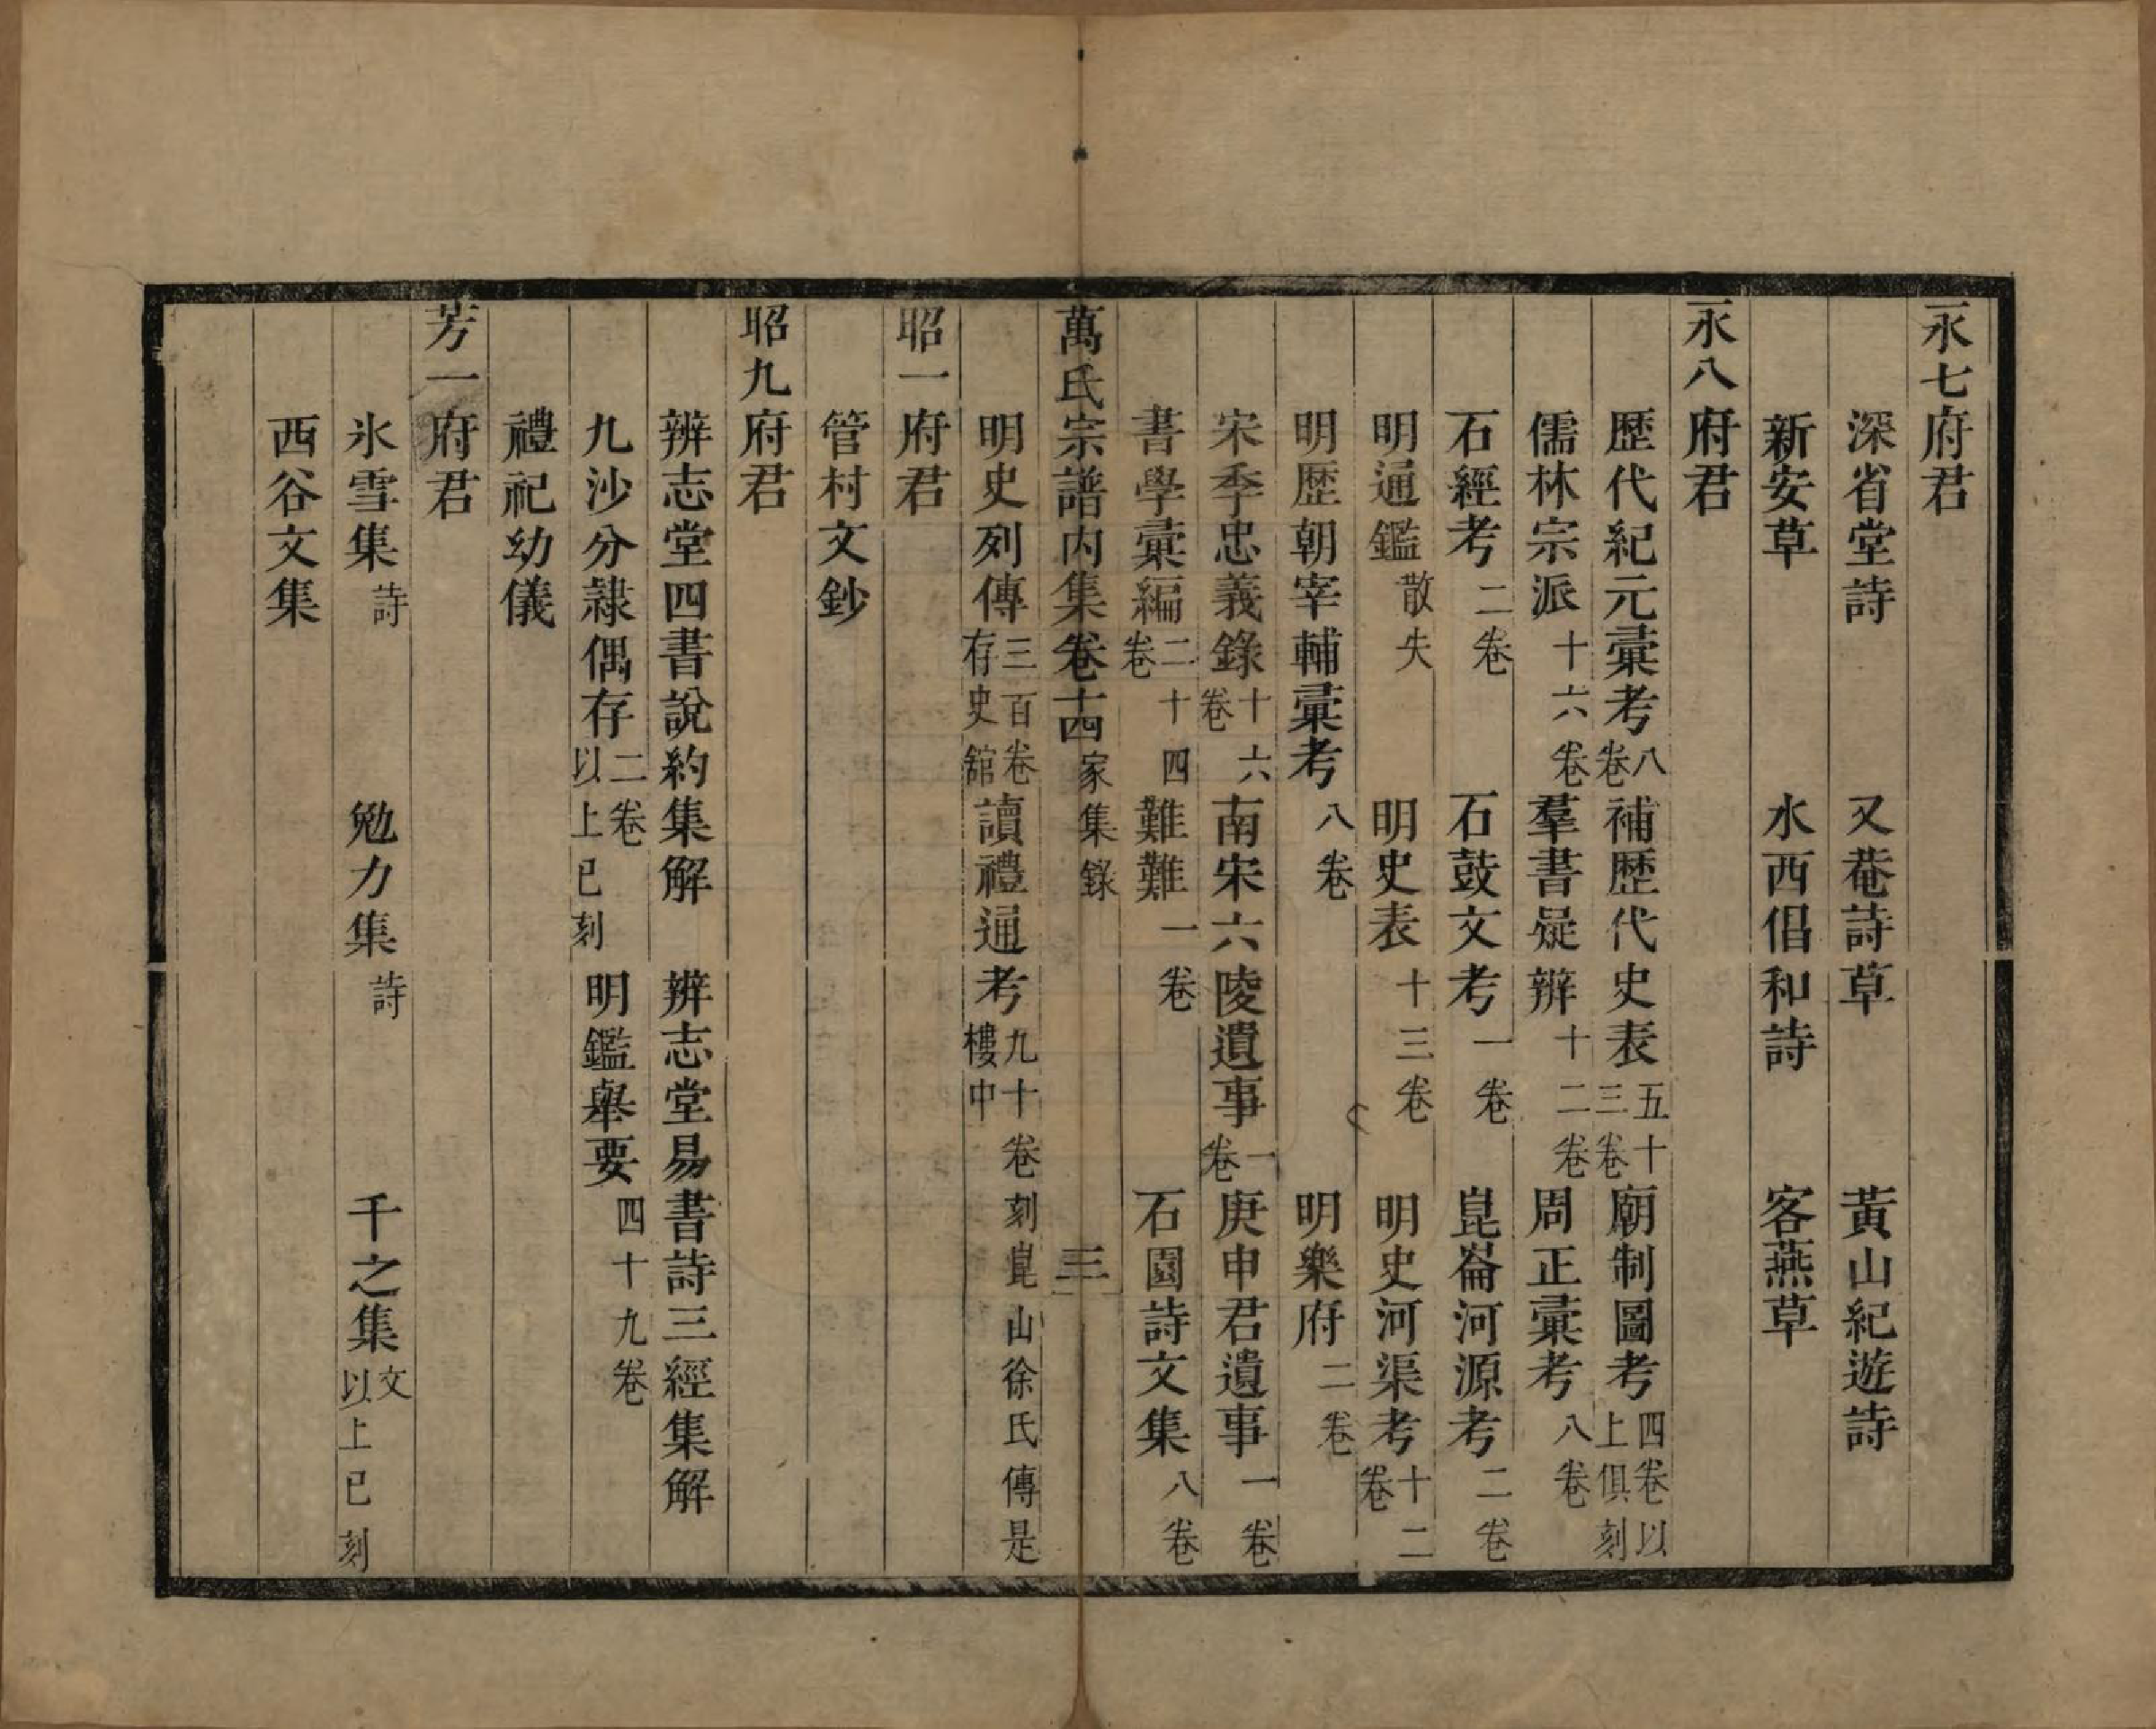 永七府君
深省堂詩　又菴詩草　黃山紀遊詩
新安草　水西倡和詩　客燕草
永八府君
歷代紀元彙考八卷　補歷代史表五十三卷　廟制圖考四卷以上俱刻
儒林宗派十六卷　羣書疑辨十二卷　周正彙考八卷
石經考二卷　石鼓文考一卷　崑崙河源考二卷
明通鑑散失　明史表十三卷　明史河渠考十二卷
明歷朝宰輔彙考八卷　明樂府二卷
宋季忠義錄十六卷　南宋六陵遺事一卷　庚申君遺事一卷
書學彙編二十四卷　難難一卷　石園詩文集八卷
萬氏宗譜內集卷十四家集錄　三
明史列傳三百卷存史館　讀禮通考九十卷刻崑山徐氏傳是樓中
昭一府君
管村文鈔
昭九府君
辨志堂四書說約集解　辨志堂易書詩三經集解
九沙分隸偶存二卷以上已刻　明鑑舉要四十九卷
禮祀幼儀
芳一府君
氷雪集詩　勉力集詩　千之集文以上已刻
西谷文集